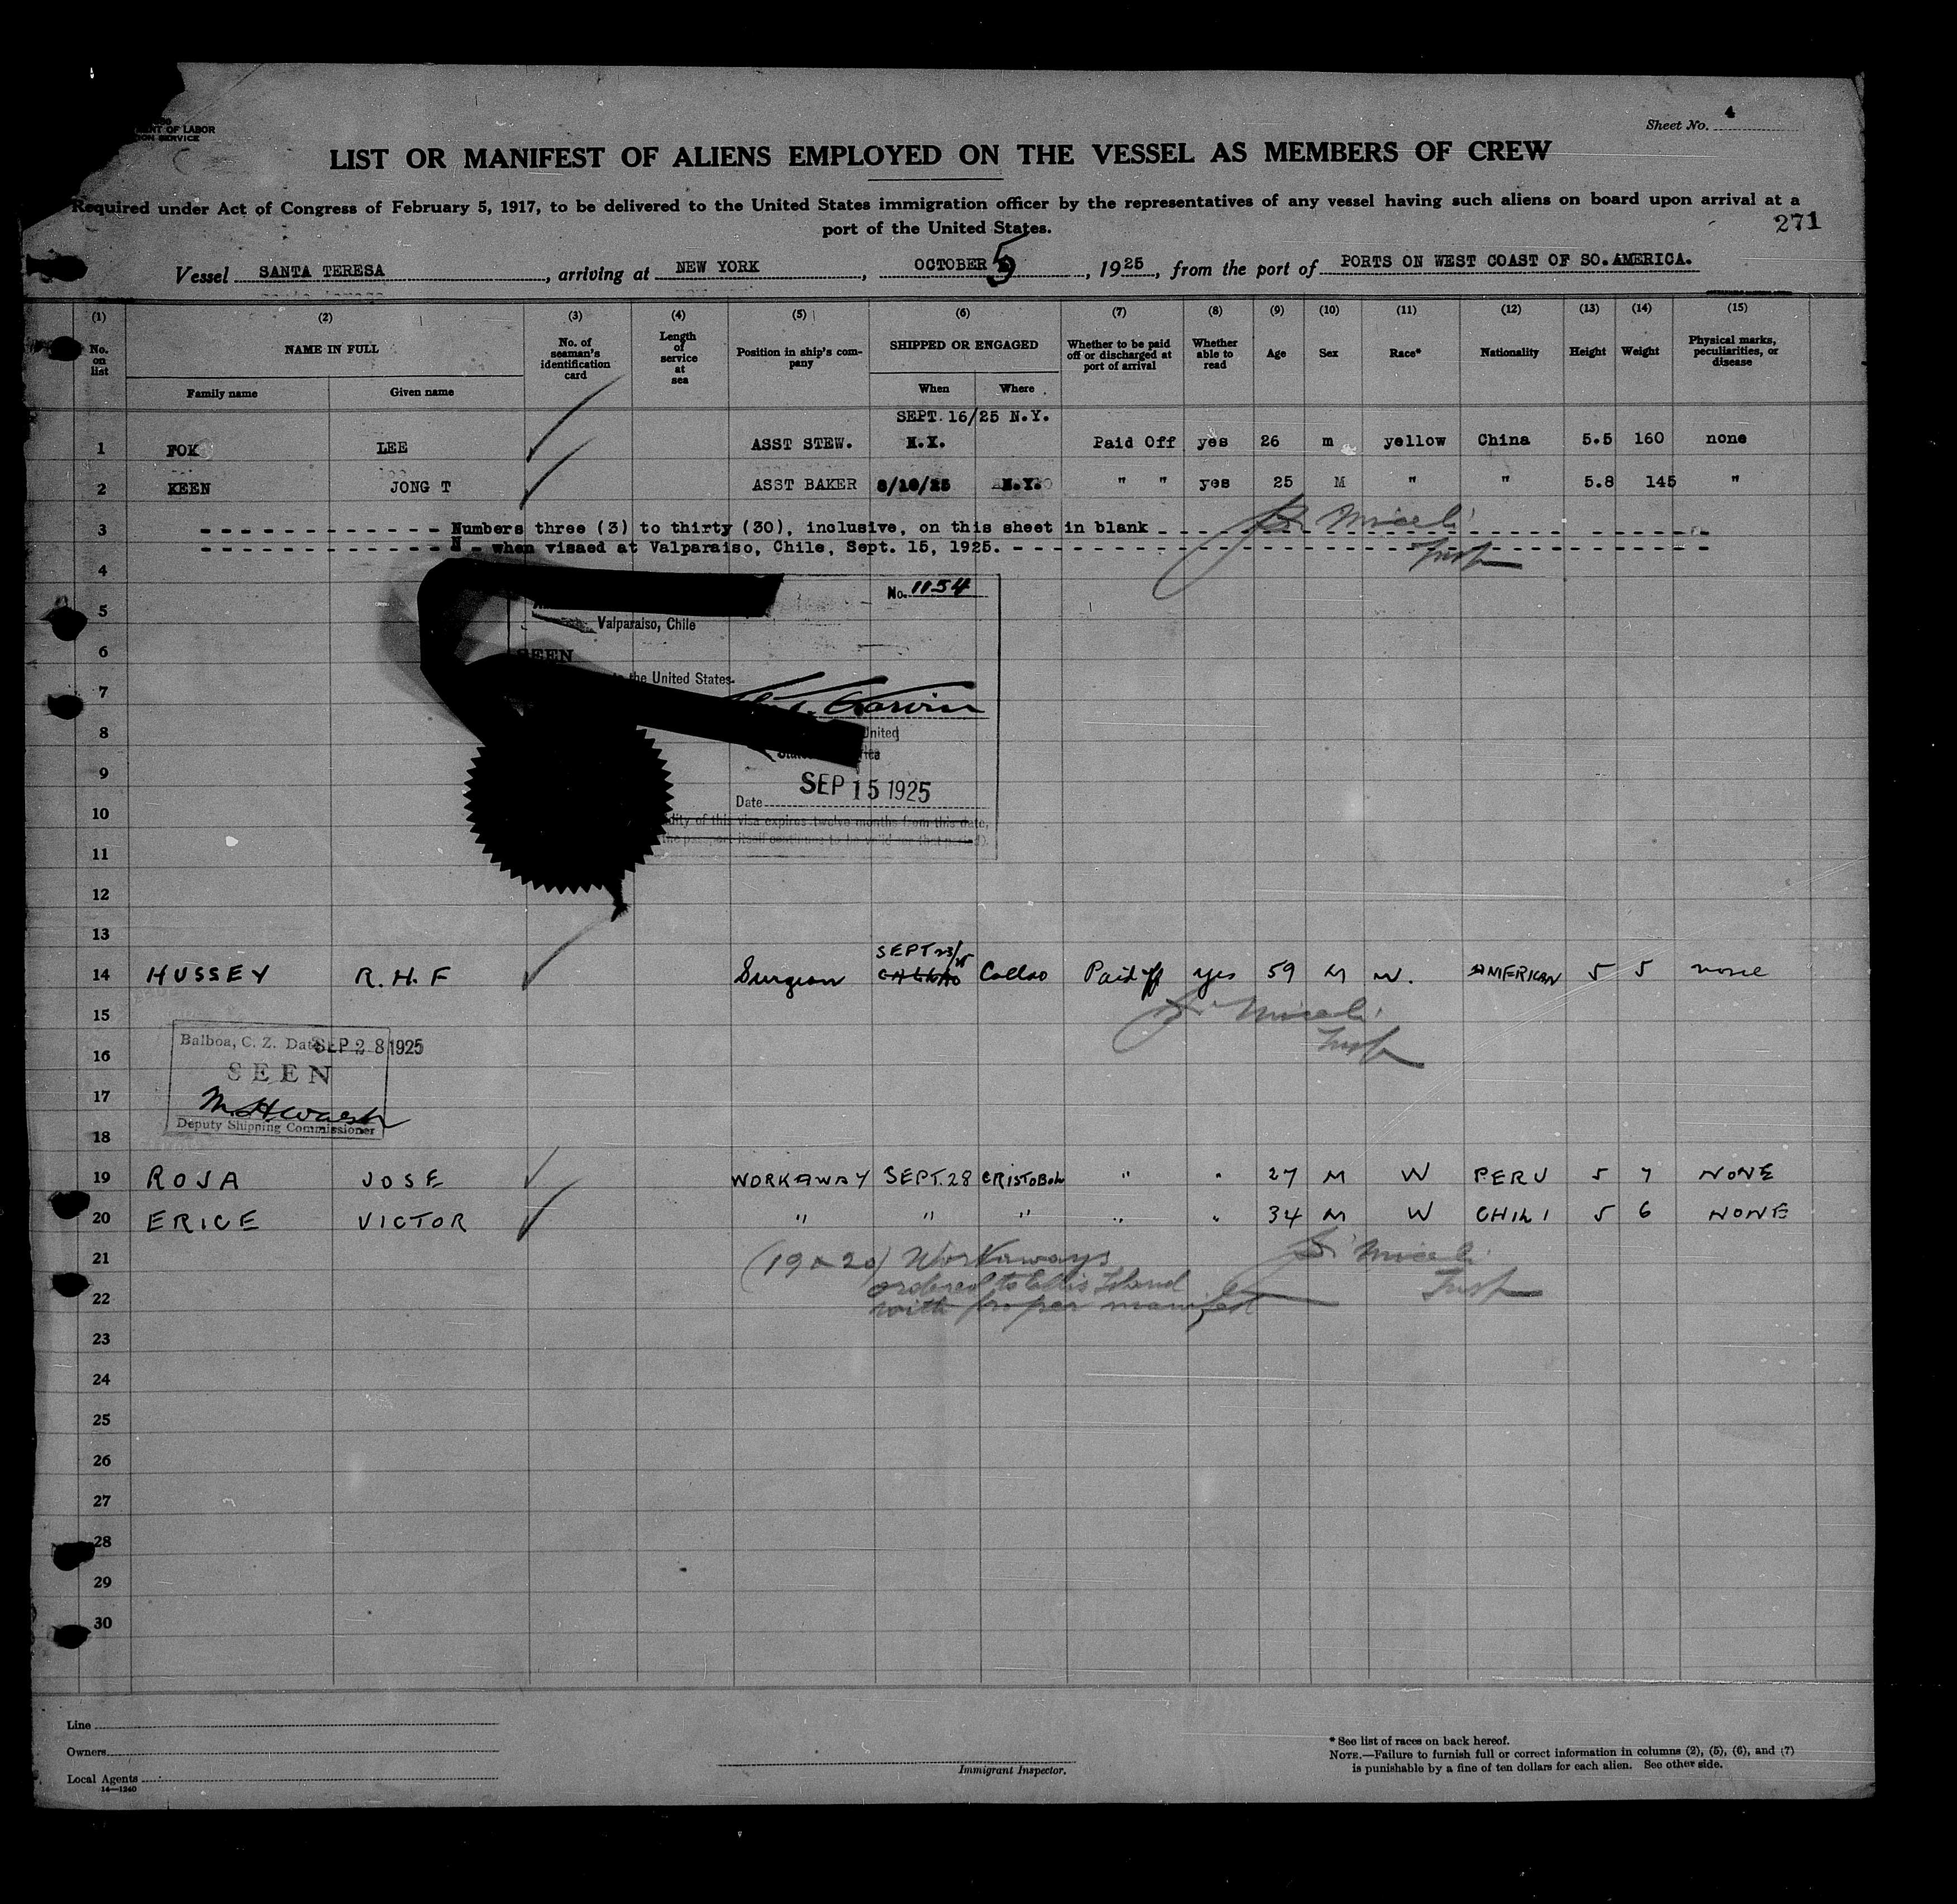 MENT OF LABOR
ION SERVICE
Sheet No. 4
LIST OR MANIFEST OF ALIENS EMPLOYED ON THE VESSEL AS MEMBERS OF CREW
Required under Act of Congress of February 5, 1917, to be delivered to the United States immigration officer by the representatives of any vessel having such aliens on board upon arrival at a
port of the United States.
271
Vessel SANTA TERESA, arriving at NEW YORK, OCTOBER 5, 1925, from the port of PORTS ON WEST COAST OF SO. AMERICA.
(1) (2) (3) (4) (5) (6) (7) (8) (9) (10) (11) (12) (13) (14) (15)
No. on list NAME IN FULL No. of seaman's identification card Length of service at sea Position in ship's company SHIPPED OR ENGAGED Whether to be paid off or discharged at port of arrival Whether able to read Age Sex Race* Nationality Height Weight Physical marks, peculiarities, or disease
Family name Given name When Where
SEPT. 16/25 N.Y.
1 FOK LEE ASST STEW. N.Y. Paid Off yes 26 m yellow China 5.5 160 none
2 KEEN JONG T ASST BAKER 8/10/25 N.Y. " " yes 25 M " " 5.8 145 "
3 Numbers three (3) to thirty (30), inclusive, on this sheet in blank
when visaed at Valparaiso, Chile, Sept. 15, 1925.
Miceli
Insp
4
No. 1154
5
Valparaiso, Chile
6
SEEN
the United States.
7
8
United
9
SEP 15 1925
Date
10
dity of this visa expires twelve months from this date,
the passport itself continues to be valid for that period).
11
12
13
SEPT 23/25
14 HUSSEY R.H.F Surgeon CALLAO Callao Paid off yes 59 M W. AMERICAN 5 5 none
Miceli
Insp
15
Balboa, C. Z. Date SEP 28 1925
16
SEEN
17
M.H. Walsh
Deputy Shipping Commissioner
18
19 ROJA JOSE WORKAWAY SEPT. 28 CRISTOBAL " " 27 M W PERU 5 7 NONE
20 ERICE VICTOR " " " " " 34 M W CHILI 5 6 NONE
21 (19 & 20) Workaways
Miceli
Insp
ordered to Ellis Island
22 with proper manifest
23
24
25
26
27
28
29
30
Line
Owners
Local Agents
14—1240
Immigrant Inspector.
* See list of races on back hereof.
NOTE.—Failure to furnish full or correct information in columns (2), (5), (6), and (7)
is punishable by a fine of ten dollars for each alien. See other side.